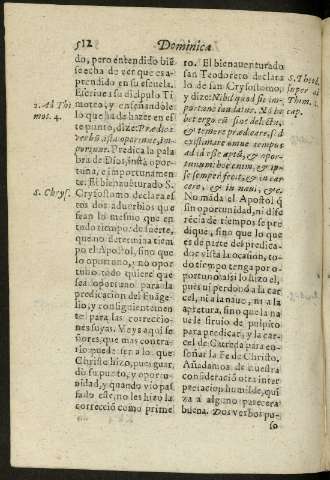 512
Dominica
do, pero entendido biẽ
se echa de ver que esa
prendido en su escuela.
Escriue a su dicipulo Ti
moteo, y enseñandole
lo que ha de hazer en es
te punto, dize: Prædica
verbũ, insta oportunè, im-
portunè. Predica la pala
bra de Dios, insta opor-
tuna, e importunamen-
te. El bienauẽturado S.
Crysostomo declara es
tos dos aduerbios que
sean lo mesmo que en
todo tiempo: de suerte,
que no determina tiem
po el Apostol, sino que
lo oportuno, y no opor
tuno todo quiere que
sea oportuno para la
predicacion del Euãge-
lio, y consiguientemen
te para las correccio-
nes suyas. Mas aqui se
ñores, que mas contra-
rio puede ser a lo que
Christo hizo, pues guar
dò su punto, y oportu-
nidad, y quando vio pas
sado este, no les hizo la
correcció como prime
2. Ad Thi
mot. 4.
S. Chrys.
ro. El bienauenturado
san Teodoreto declara
lo de san Crysostomo,
y dize: Nihil quod sit im-
portunè laudatur. Nõ iu-
bet ergo eũ sine delectu,
& temerè prædicare, sed
existimare omne tempus
ad id esse aptũ, & opor-
tunum: hoc enim, & ip-
se semper fecit, & in car
cere, & in naui, &c.
No mãda el Apostol q̃
sin oportunidad, ni dife
récia de tiempos se pre
dique, sino que lo que
es de parte del predica-
dor vista la ocasion, to-
do tiempo tenga por o
portuno: assi lo hizo el,
pues ni perdonò a la car
cel, ni a la naue, ni a la
apretura, sino que la na
ue le siruio de pulpito
para predicar, y la car-
cel de Catreda para en-
señar la Fe de Christo.
Añadamos de nuestra
cõsideració otra inter
pretacion humilde, qui
za a alguno parecera
buena. Dos verbos pu-
S. Theod.
super ad
Thim. 2.
cap.
so